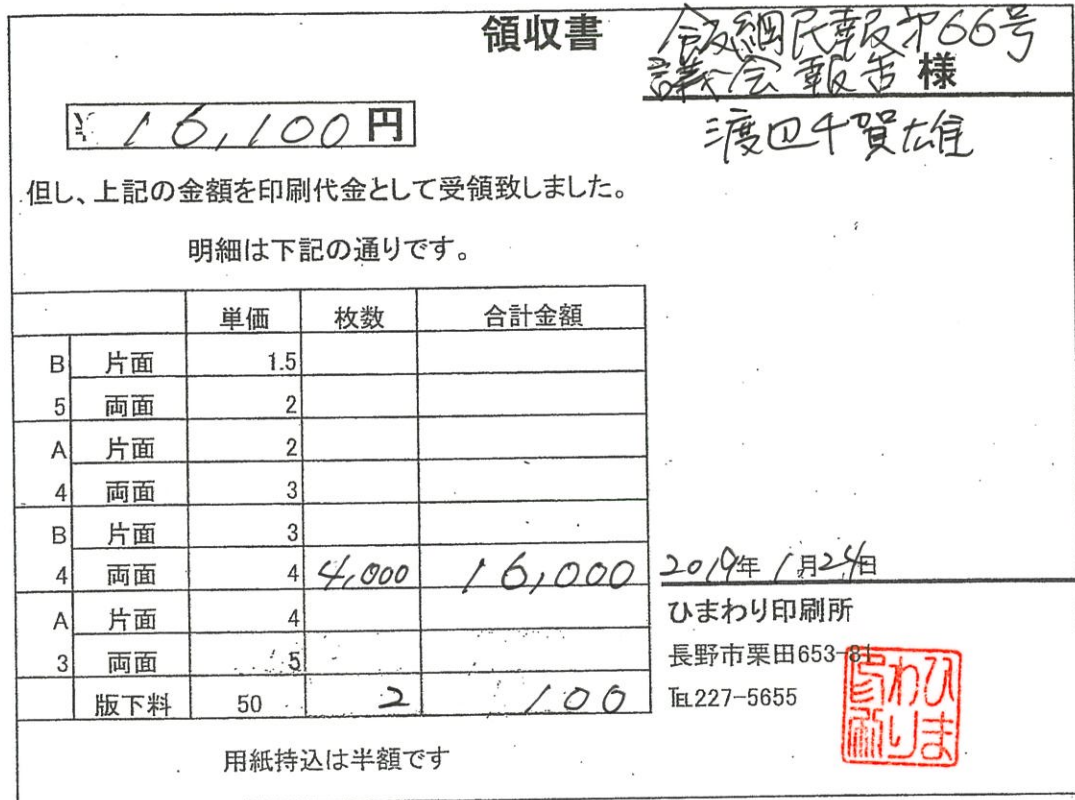 領収書
飯綱民報第66号
議会報告 様
渡辺千賀雄
¥ 16,100 円
但し、上記の金額を印刷代金として受領致しました。
明細は下記の通りです。
単価 枚数 合計金額
B 片面 1.5
5 両面 2
A 片面 2
4 両面 3
B 片面 3
4 両面 4 4,000 16,000
A 片面 4
3 両面 5
版下料 50 2 100
2019年1月24日
ひまわり印刷所
長野市栗田653-81
℡227-5655
ひまわり印刷
用紙持込は半額です